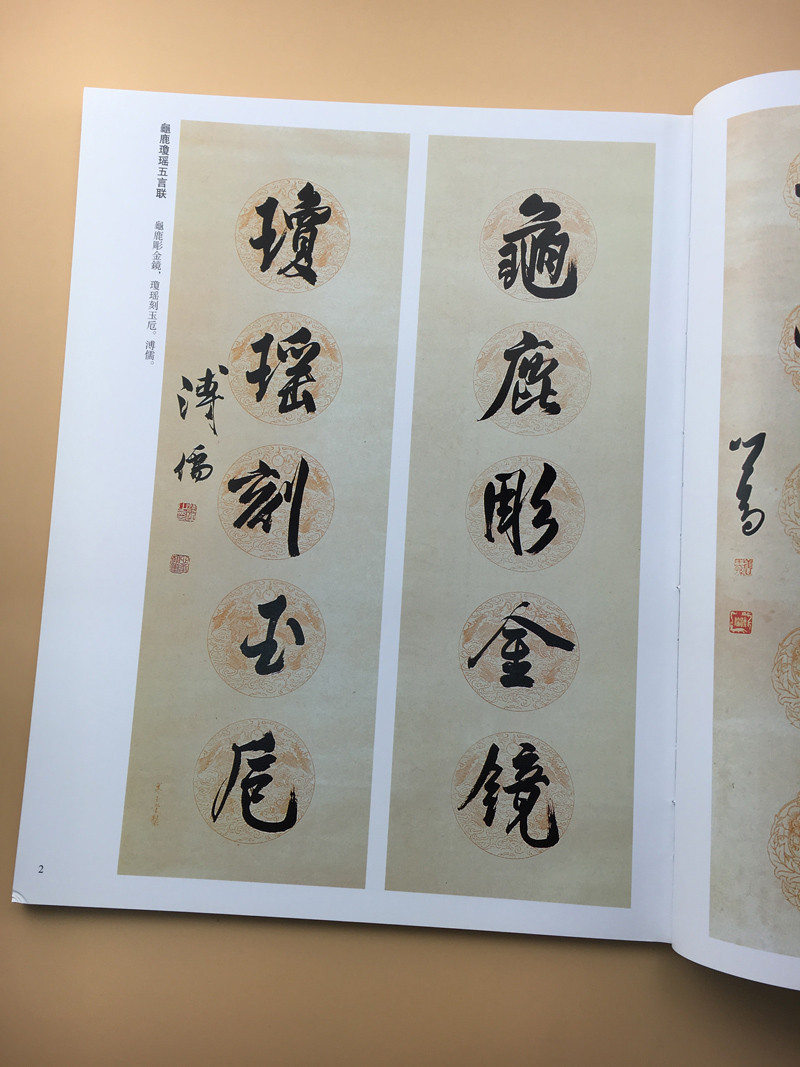 龜鹿瓊瑶五言联
龜鹿彫金鏡，瓊瑶刻玉卮。溥儒。
龜鹿彫金鏡
瓊瑶刻玉卮
溥儒
心畬
2